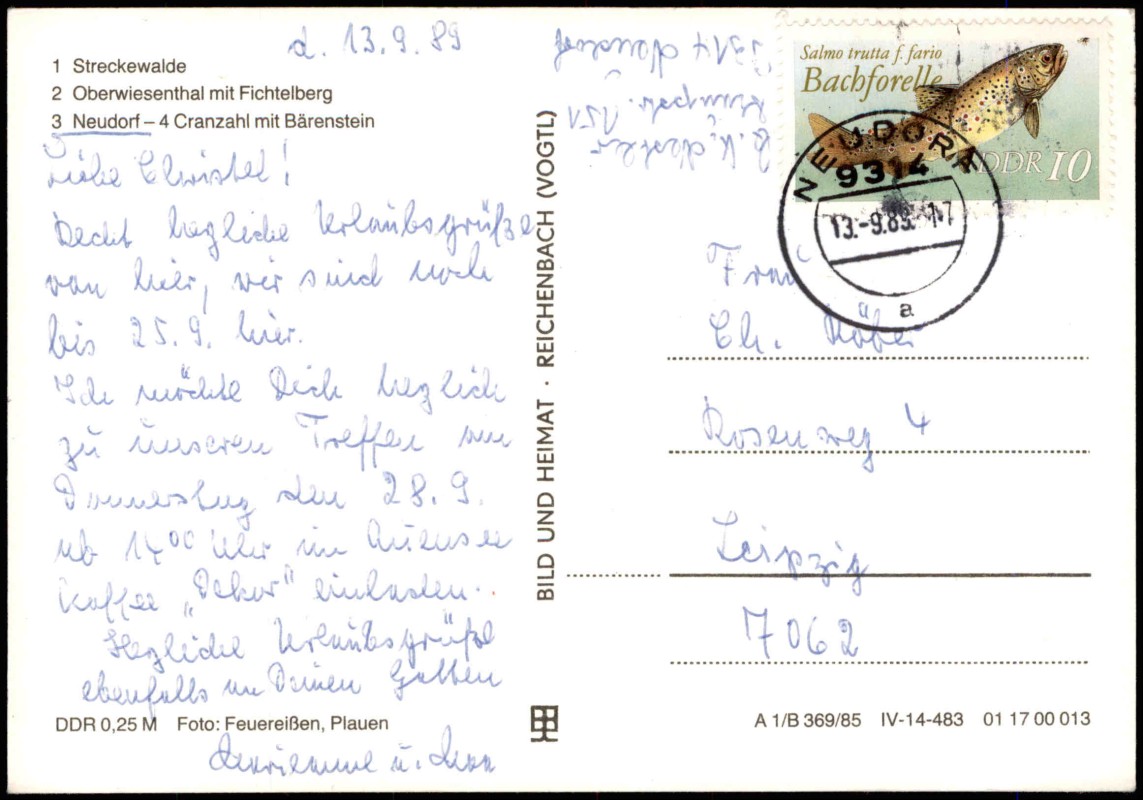 d. 13.9.89
1 Streckewalde
2 Oberwiesenthal mit Fichtelberg
3 Neudorf – 4 Cranzahl mit Bärenstein
Liebe Christel!
Recht herzliche Urlaubsgrüße
von hier, wir sind noch
bis 25.9. hier.
Ich möchte Dich herzlich
zu unseren Treffen am
Donnerstag den 28.9.
ab 14 00 Uhr im Auensee
Kaffee „ “ einladen.
Herzliche Urlaubsgrüße
ebenfalls an Deinen Gatten
DDR 0,25 M Foto: Feuereißen, Plauen
Marianne u.
BILD UND HEIMAT · REICHENBACH (VOGTL)
9314 Neudorf
151
Salmo trutta f. fario
Bachforelle
DDR 10
NEUDORF
9314
13.-9.89.-17
a
Frau
Ch. Köber
Rosenweg 4
Leipzig
7062
A 1/B 369/85 IV-14-483 01 17 00 013